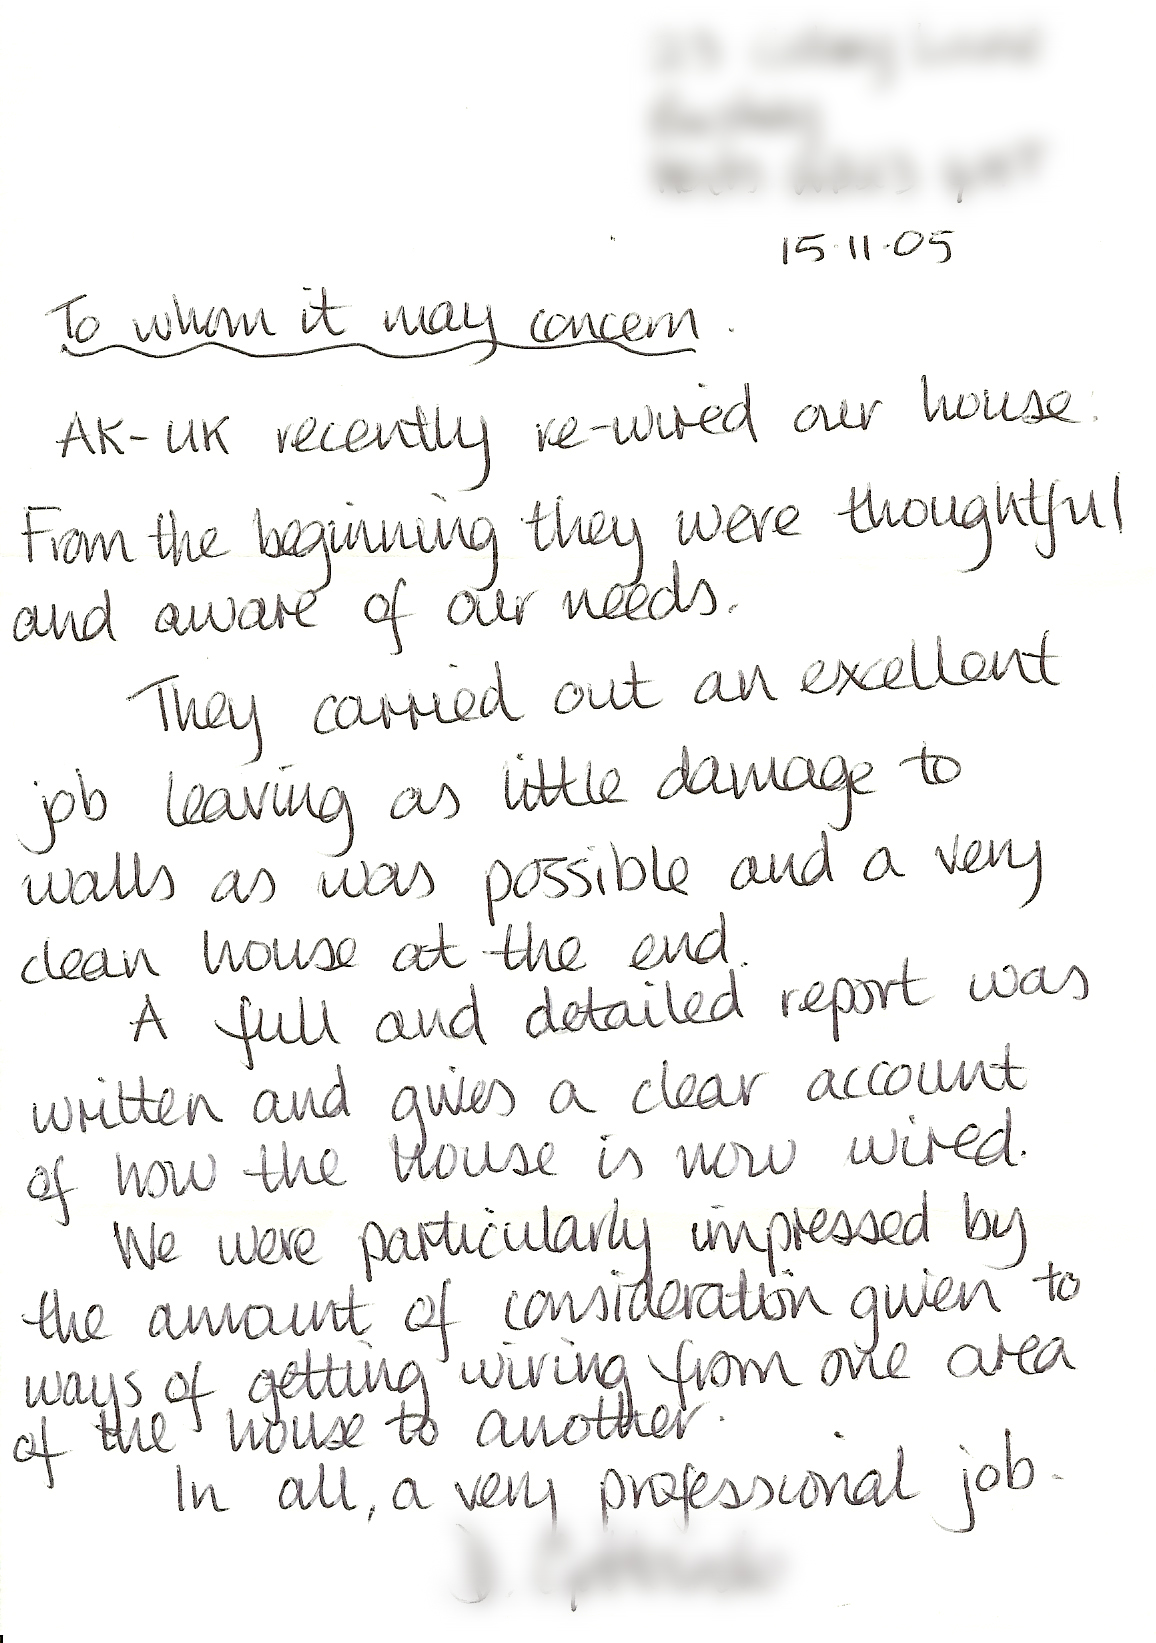 15.11.05
To whom it may concern.
AK-UK recently re-wired our house.
From the beginning they were thoughtful
and aware of our needs.
They carried out an excellent
job leaving as little damage to
walls as was possible and a very
clean house at the end.
A full and detailed report was
written and gives a clear account
of how the house is now wired.
We were particularly impressed by
the amount of consideration given to
ways of getting wiring from one area
of the house to another.
In all, a very professional job.